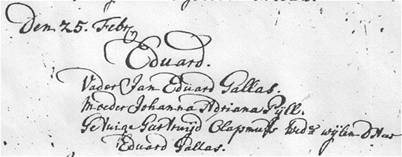 Den 25. Febry
Eduard.
Vader Jan Eduard Gallas.
moeder Johanna Adriana Pÿll.
Getuige Gartruijd Clapmuts Wedē wijlen
Eduard Gallas.